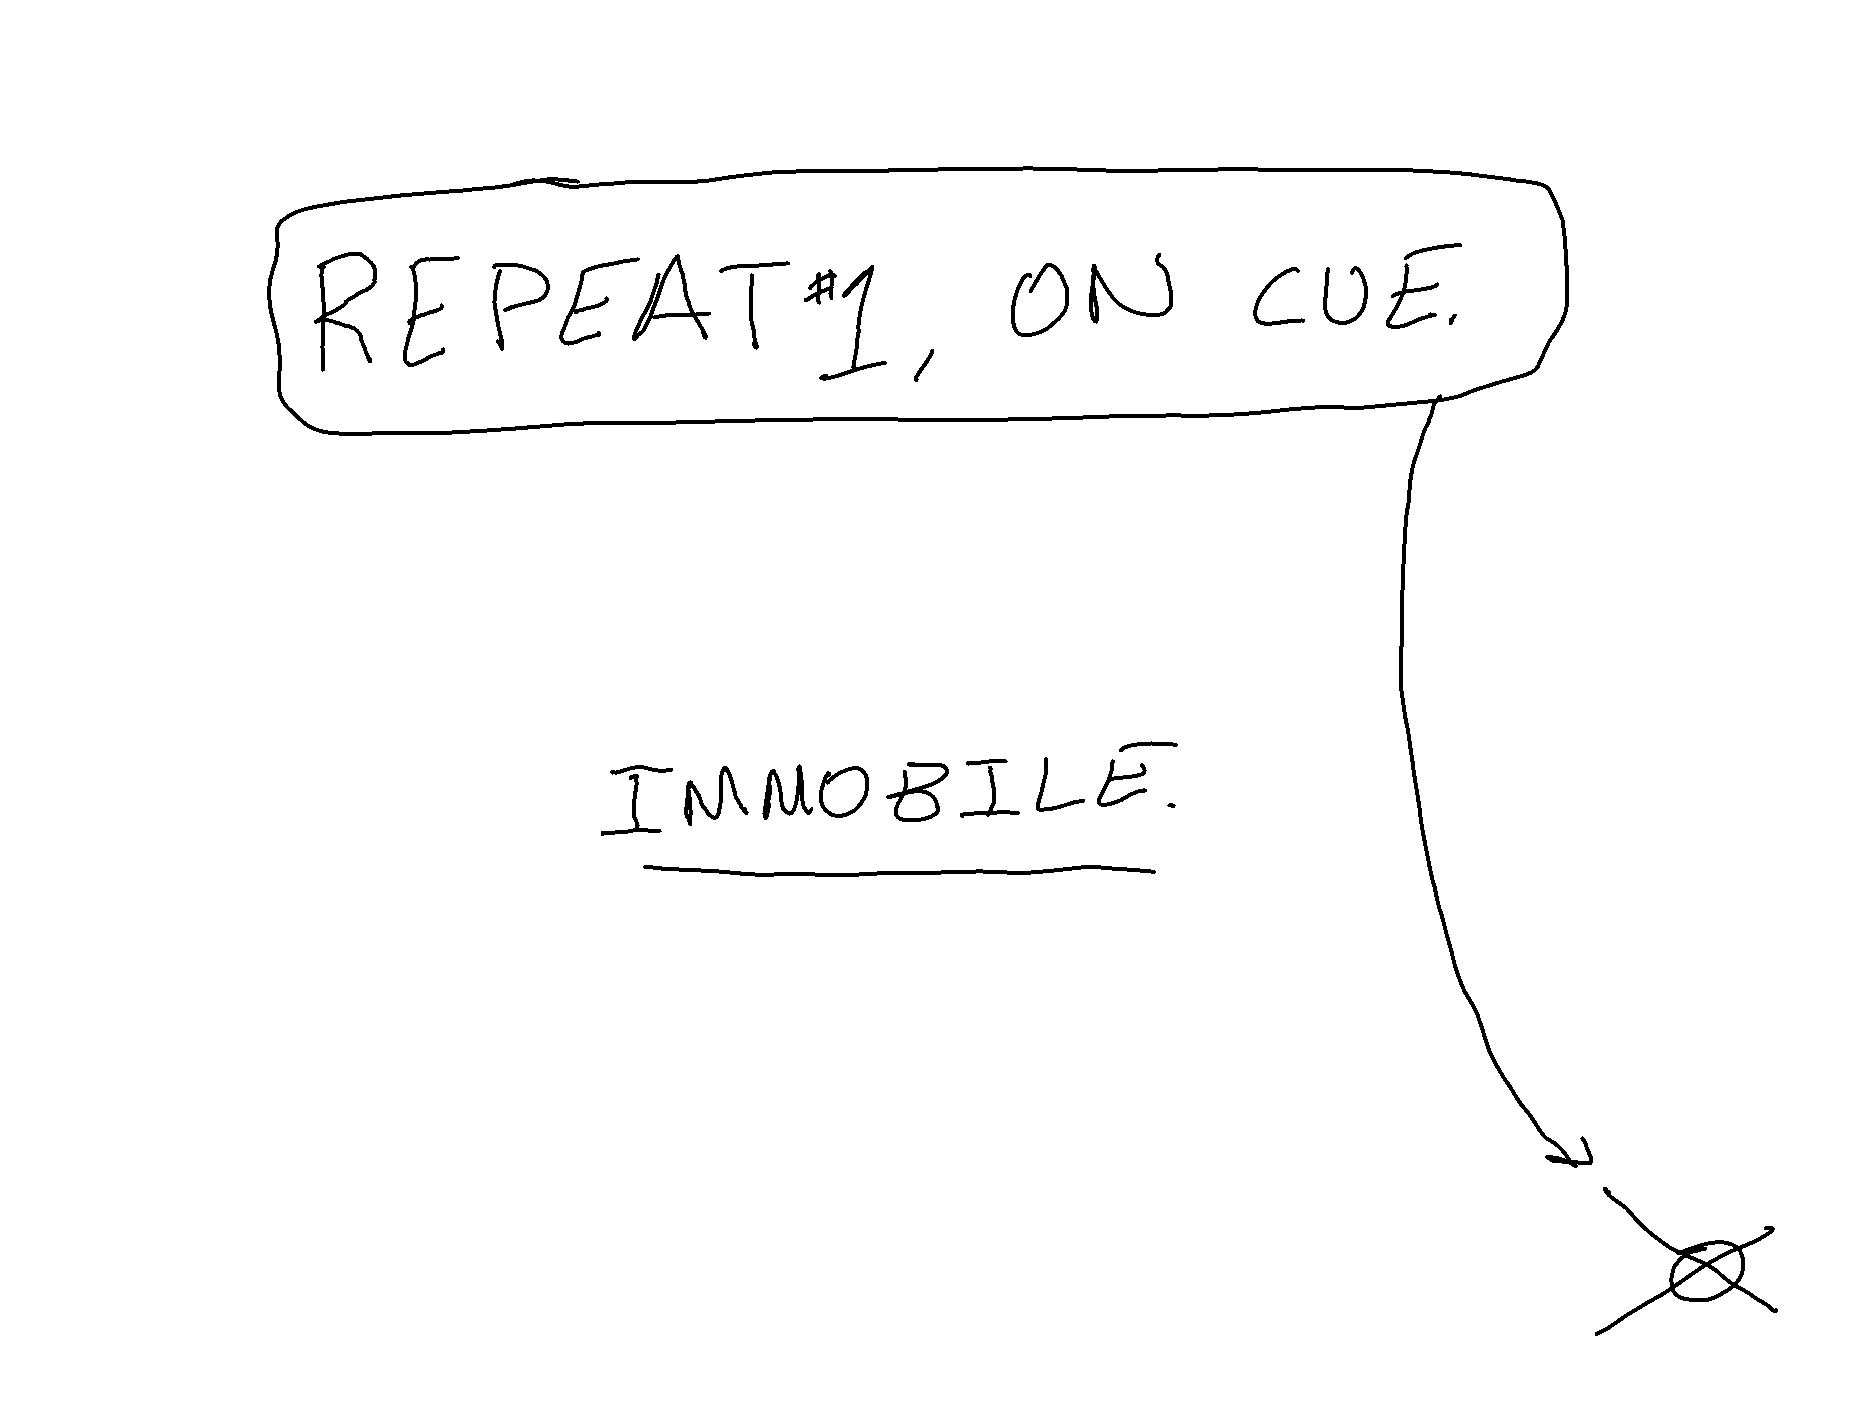 REPEAT #1, ON CUE.
IMMOBILE.